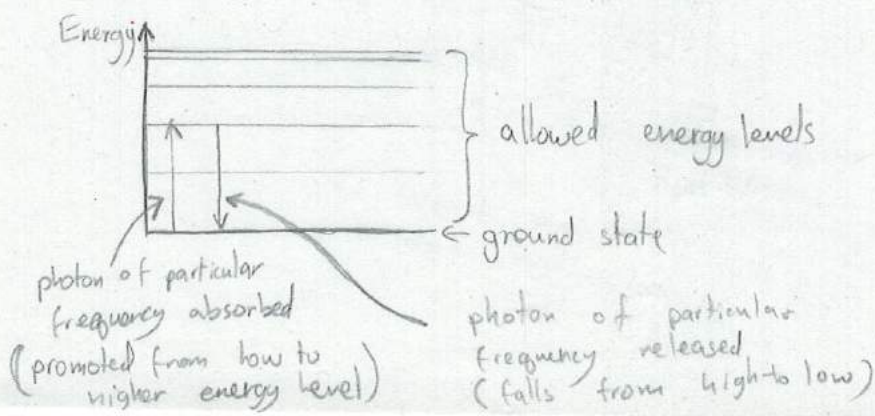 Energy
allowed energy levels
← ground state
photon of particular
frequency absorbed
(promoted from low to
higher energy level)
photon of particular
frequency released
(falls from high to low)